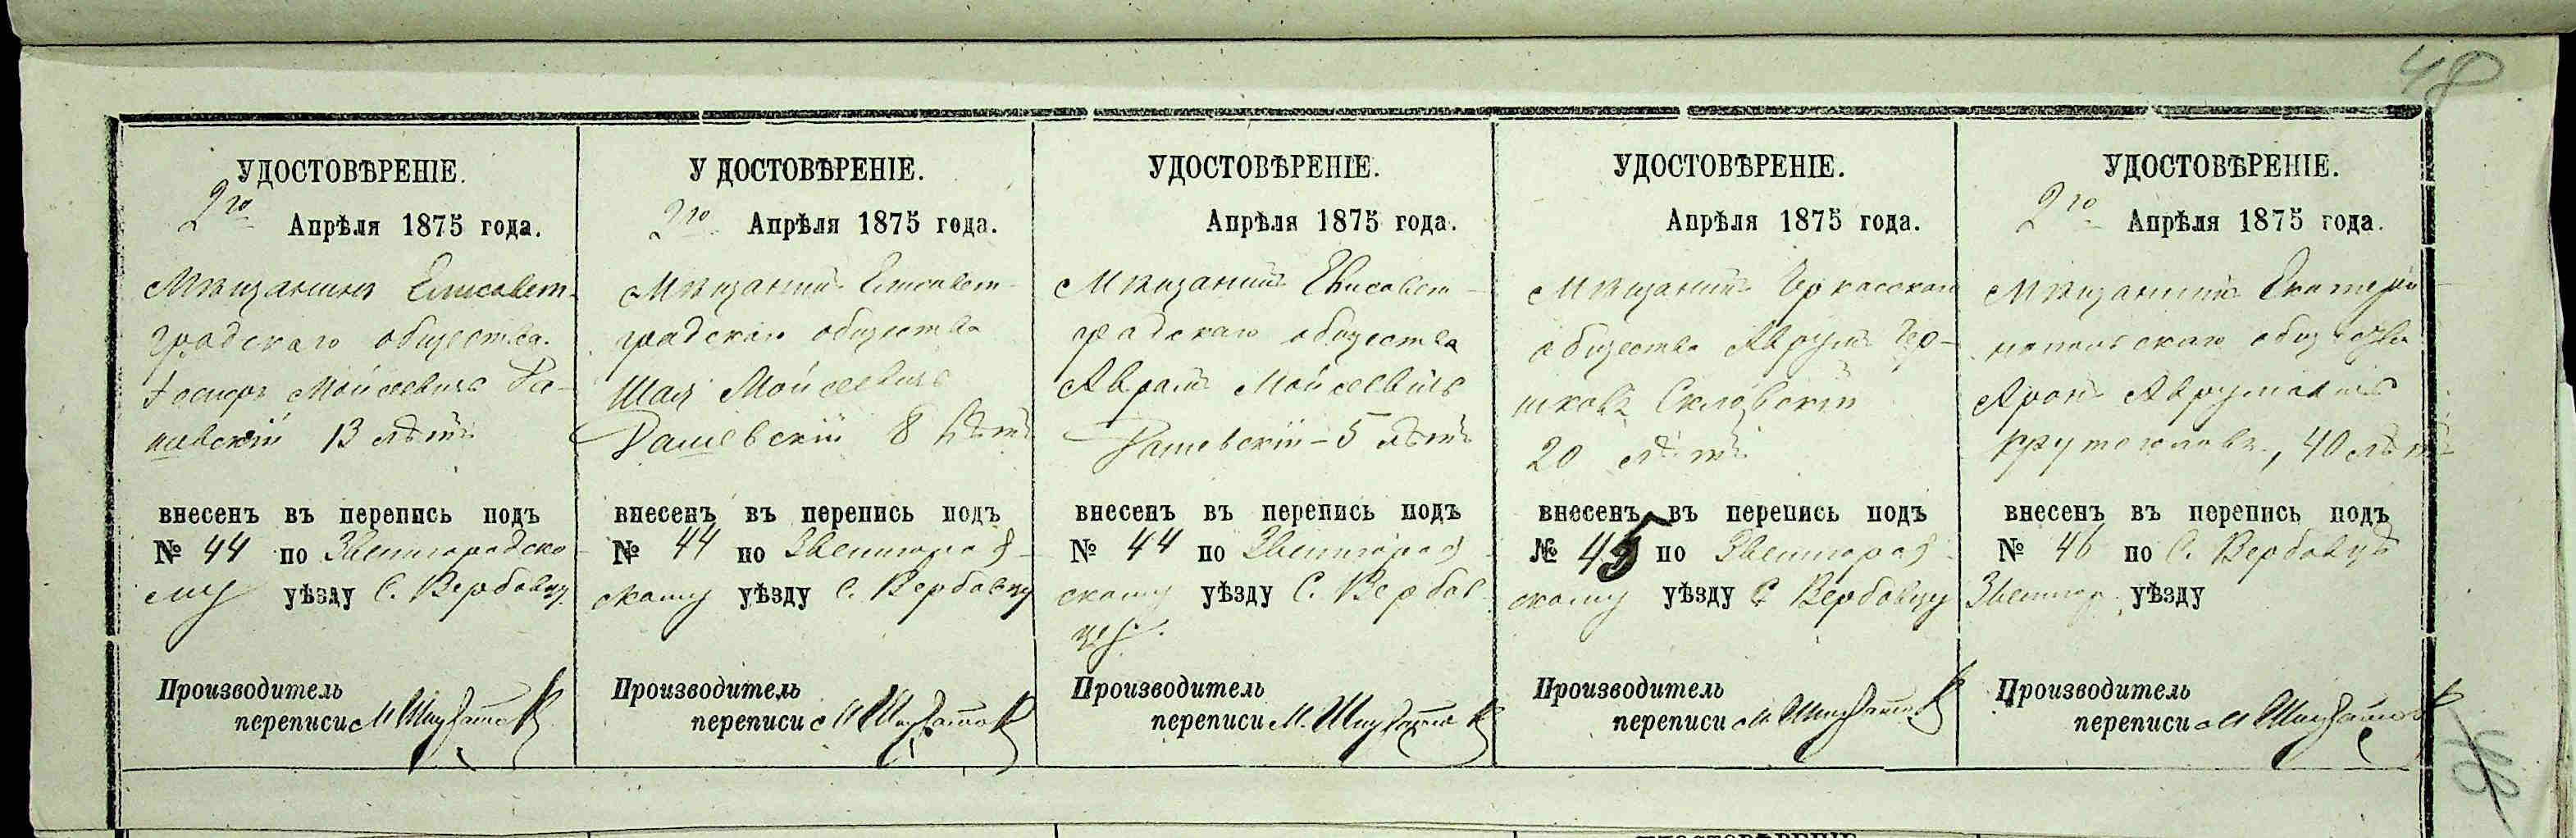 48
УДОСТОВѢРЕНІЕ.
2го Апрѣля 1875 года.
Мѣщанинъ Елисавет-
градскаго общества
Мойсеевичъ Ра-
шевскій 13 лѣтъ
внесенъ въ перепись подъ
№ 44 по Звенигородско
му уѣзду С. Вербовцу
Производитель
переписи М.
УДОСТОВѢРЕНІЕ.
2го Апрѣля 1875 года.
Мѣщанинъ Елисавет-
градскаго общества
Шая Мойсеевичъ
Рашевскій 8 лѣтъ
внесенъ въ перепись подъ
№ 44 по Звенигород-
скому уѣзду С. Вербовцу
Производитель
переписи М.
УДОСТОВѢРЕНІЕ.
Апрѣля 1875 года.
Мѣщанинъ Елисавет-
градскаго общества
Аврамъ Мойсеевичъ
Рашевскій – 5 лѣтъ
внесенъ въ перепись подъ
№ 44 по Звенигород-
скому уѣзду С. Вербов-
цу.
Производитель
переписи М.
УДОСТОВѢРЕНІЕ.
Апрѣля 1875 года.
Мѣщанинъ Черкасскаго
общества Аврумъ Гер-
шковъ Скловскій
20 лѣтъ
внесенъ въ перепись подъ
№ 45 по Звенигород-
скому уѣзду С Вербовцу
Производитель
переписи М.
УДОСТОВѢРЕНІЕ.
2го Апрѣля 1875 года.
Мѣщанинъ Екатери-
нопольскаго общества
Аронъ Аврумовичъ
Крутоголовъ, 40 лѣтъ
внесенъ въ перепись подъ
№ 46 по С. Вербовцѣ
Звенигор. уѣзду
Производитель
переписи М.